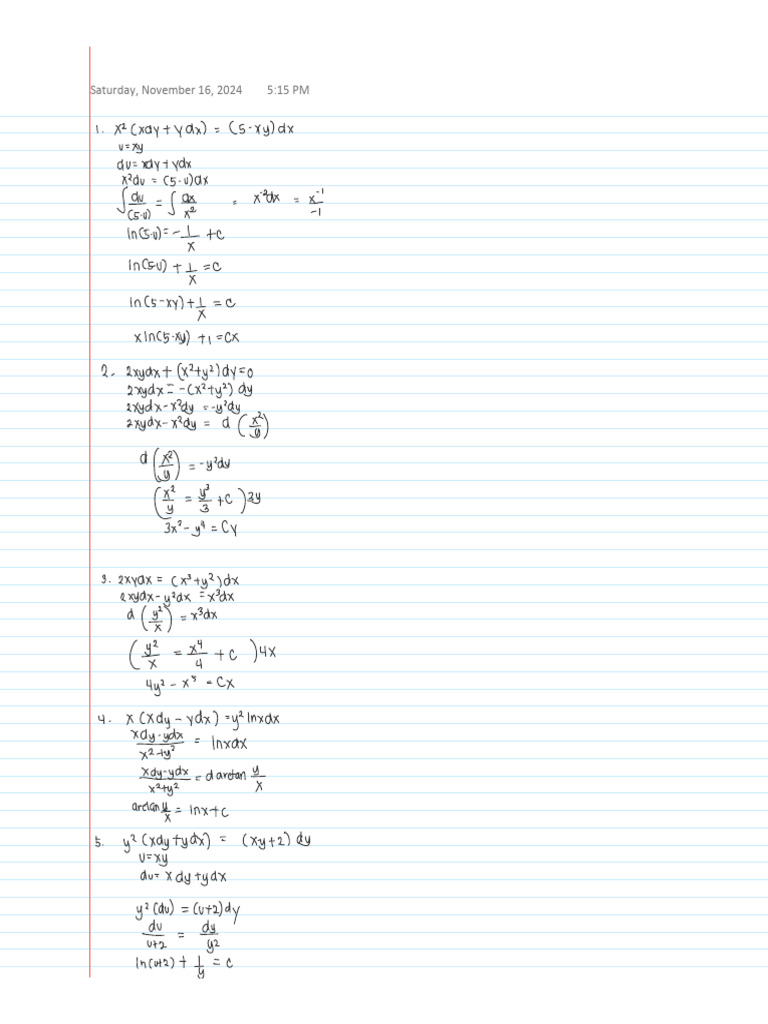 Saturday, November 16, 2024 5:15 PM
1. x² (xdy + ydx) = (5-xy) dx
u=xy
du = xdy + ydx
x²du = (5-u)dx
∫ du/(5-u) = ∫ dx/x² = x⁻²dx = x⁻¹/-1
ln(5-u) = -1/x + C
ln(5-u) + 1/x = C
ln(5-xy) + 1/x = C
x ln(5-xy) + 1 = Cx
2. 2xydx + (x²+y²)dy=0
2xydx = -(x²+y²) dy
2xydx - x²dy = -y²dy
2xydx - x²dy = d (x²/y)
d (x²/y) = -y²dy
(x²/y = y³/3 + C) 3y
3x² - y⁴ = Cy
3. 2xydx = (x³+y²)dx
2xydx - y²dx = x³dx
d (y²/x) = x³dx
(y²/x = x⁴/4 + C) 4x
4y² - x⁵ = Cx
4. x (xdy - ydx) = y² lnxdx
xdy-ydx/x²+y² = lnxdx
xdy-ydx/x²+y² = d arctan y/x
arctan y/x = lnx + C
5. y² (xdy + ydx) = (xy+2) dy
u=xy
du= x dy + ydx
y² (du) = (u+2) dy
du/u+2 = dy/y²
ln(u+2) + 1/y = C